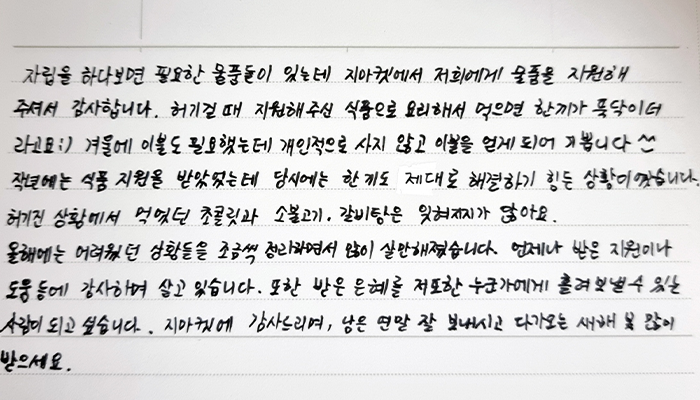 자립을 하다보면 필요한 물품들이 있는데 지마켓에서 저희에게 물품을 지원해
주셔서 감사합니다. 허기질 때 지원해주신 식품으로 요리해서 먹으면 한끼가 뚝딱이더
라고요:) 겨울에 이불도 필요했는데 개인적으로 사지 않고 이불을 얻게되어 기쁩니다
작년에는 식품 지원을 받았었는데 당시에는 한 끼도 제대로 해결하기 힘든 상황이었습니다.
허기진 상황에서 먹었던 초콜릿과 소불고기, 갈비탕은 잊혀져지가 않아요.
올해에는 어려웠던 상황들을 조금씩 정리하면서 많이 살만해졌습니다. 언제나 받은 지원이나
도움 등에 감사하며 살고 있습니다. 또한 받은 은혜를 저또한 누군가에게 흘려보낼 수 있는
사람이 되고 싶습니다. 지마켓에 감사드리며, 남은 연말 잘 보내시고 다가오는 새해 복 많이
받으세요.